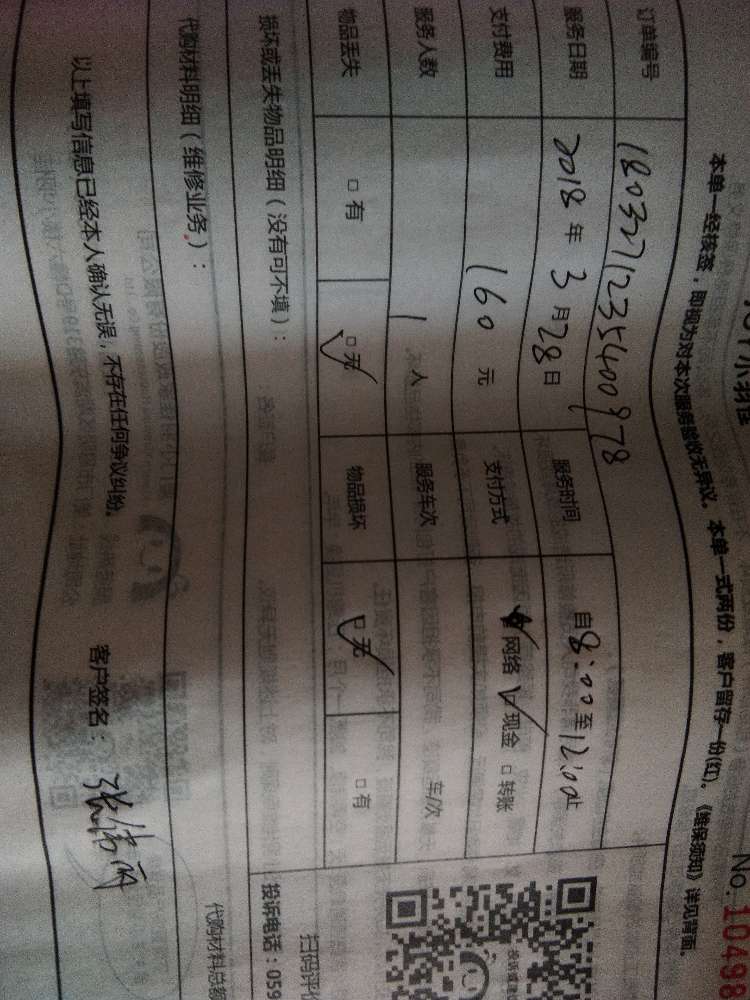 No. 10498
本单一经核签，即视为对本次服务验收无异议。本单一式两份，客户留存一份(红)。《维保须知》详见背面。
订单编号 180327123540097 8
服务日期 2018 年 3 月 28 日 服务时间 自 8:00 至 12:00 止
支付费用 160 元 支付方式 网络 □ 现金 □ 转账
服务人数 1 人 服务车次 车/次
物品丢失 □ 有 □ 无 物品损坏 □ 无 □ 有
损坏或丢失物品明细（没有可不填）：
扫码评价
投诉电话：059
代购材料明细（维修业务）：
代购材料总额
以上填写信息已经本人确认无误，不存在任何争议纠纷。 客户签名：